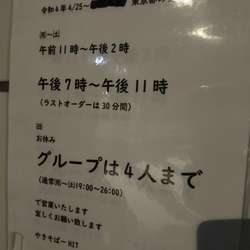 令和4年4/25～
東京都の
㈪～㈯
午前11時～午後2時
午後7時～午後11時
(ラストオーダーは30分前)
㈰
お休み
グループは4人まで
(通常㈪～㈯19:00～26:00)
で営業いたします
宜しくお願い致します
やきそばー HIT